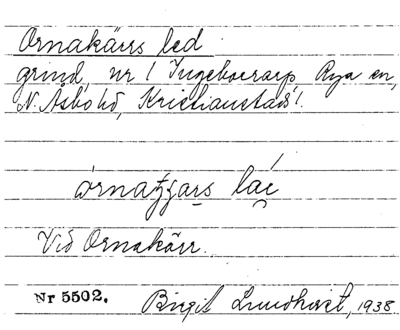 Ornakärrs led
grind, nr 1 Ingebocrarp, Rya sn,
N. Åsbo hd, Kristianstads l.
òrnaʒɡars laí
Vid Ornakärr.
Nr 5502. Birgit Lundkvist, 1938